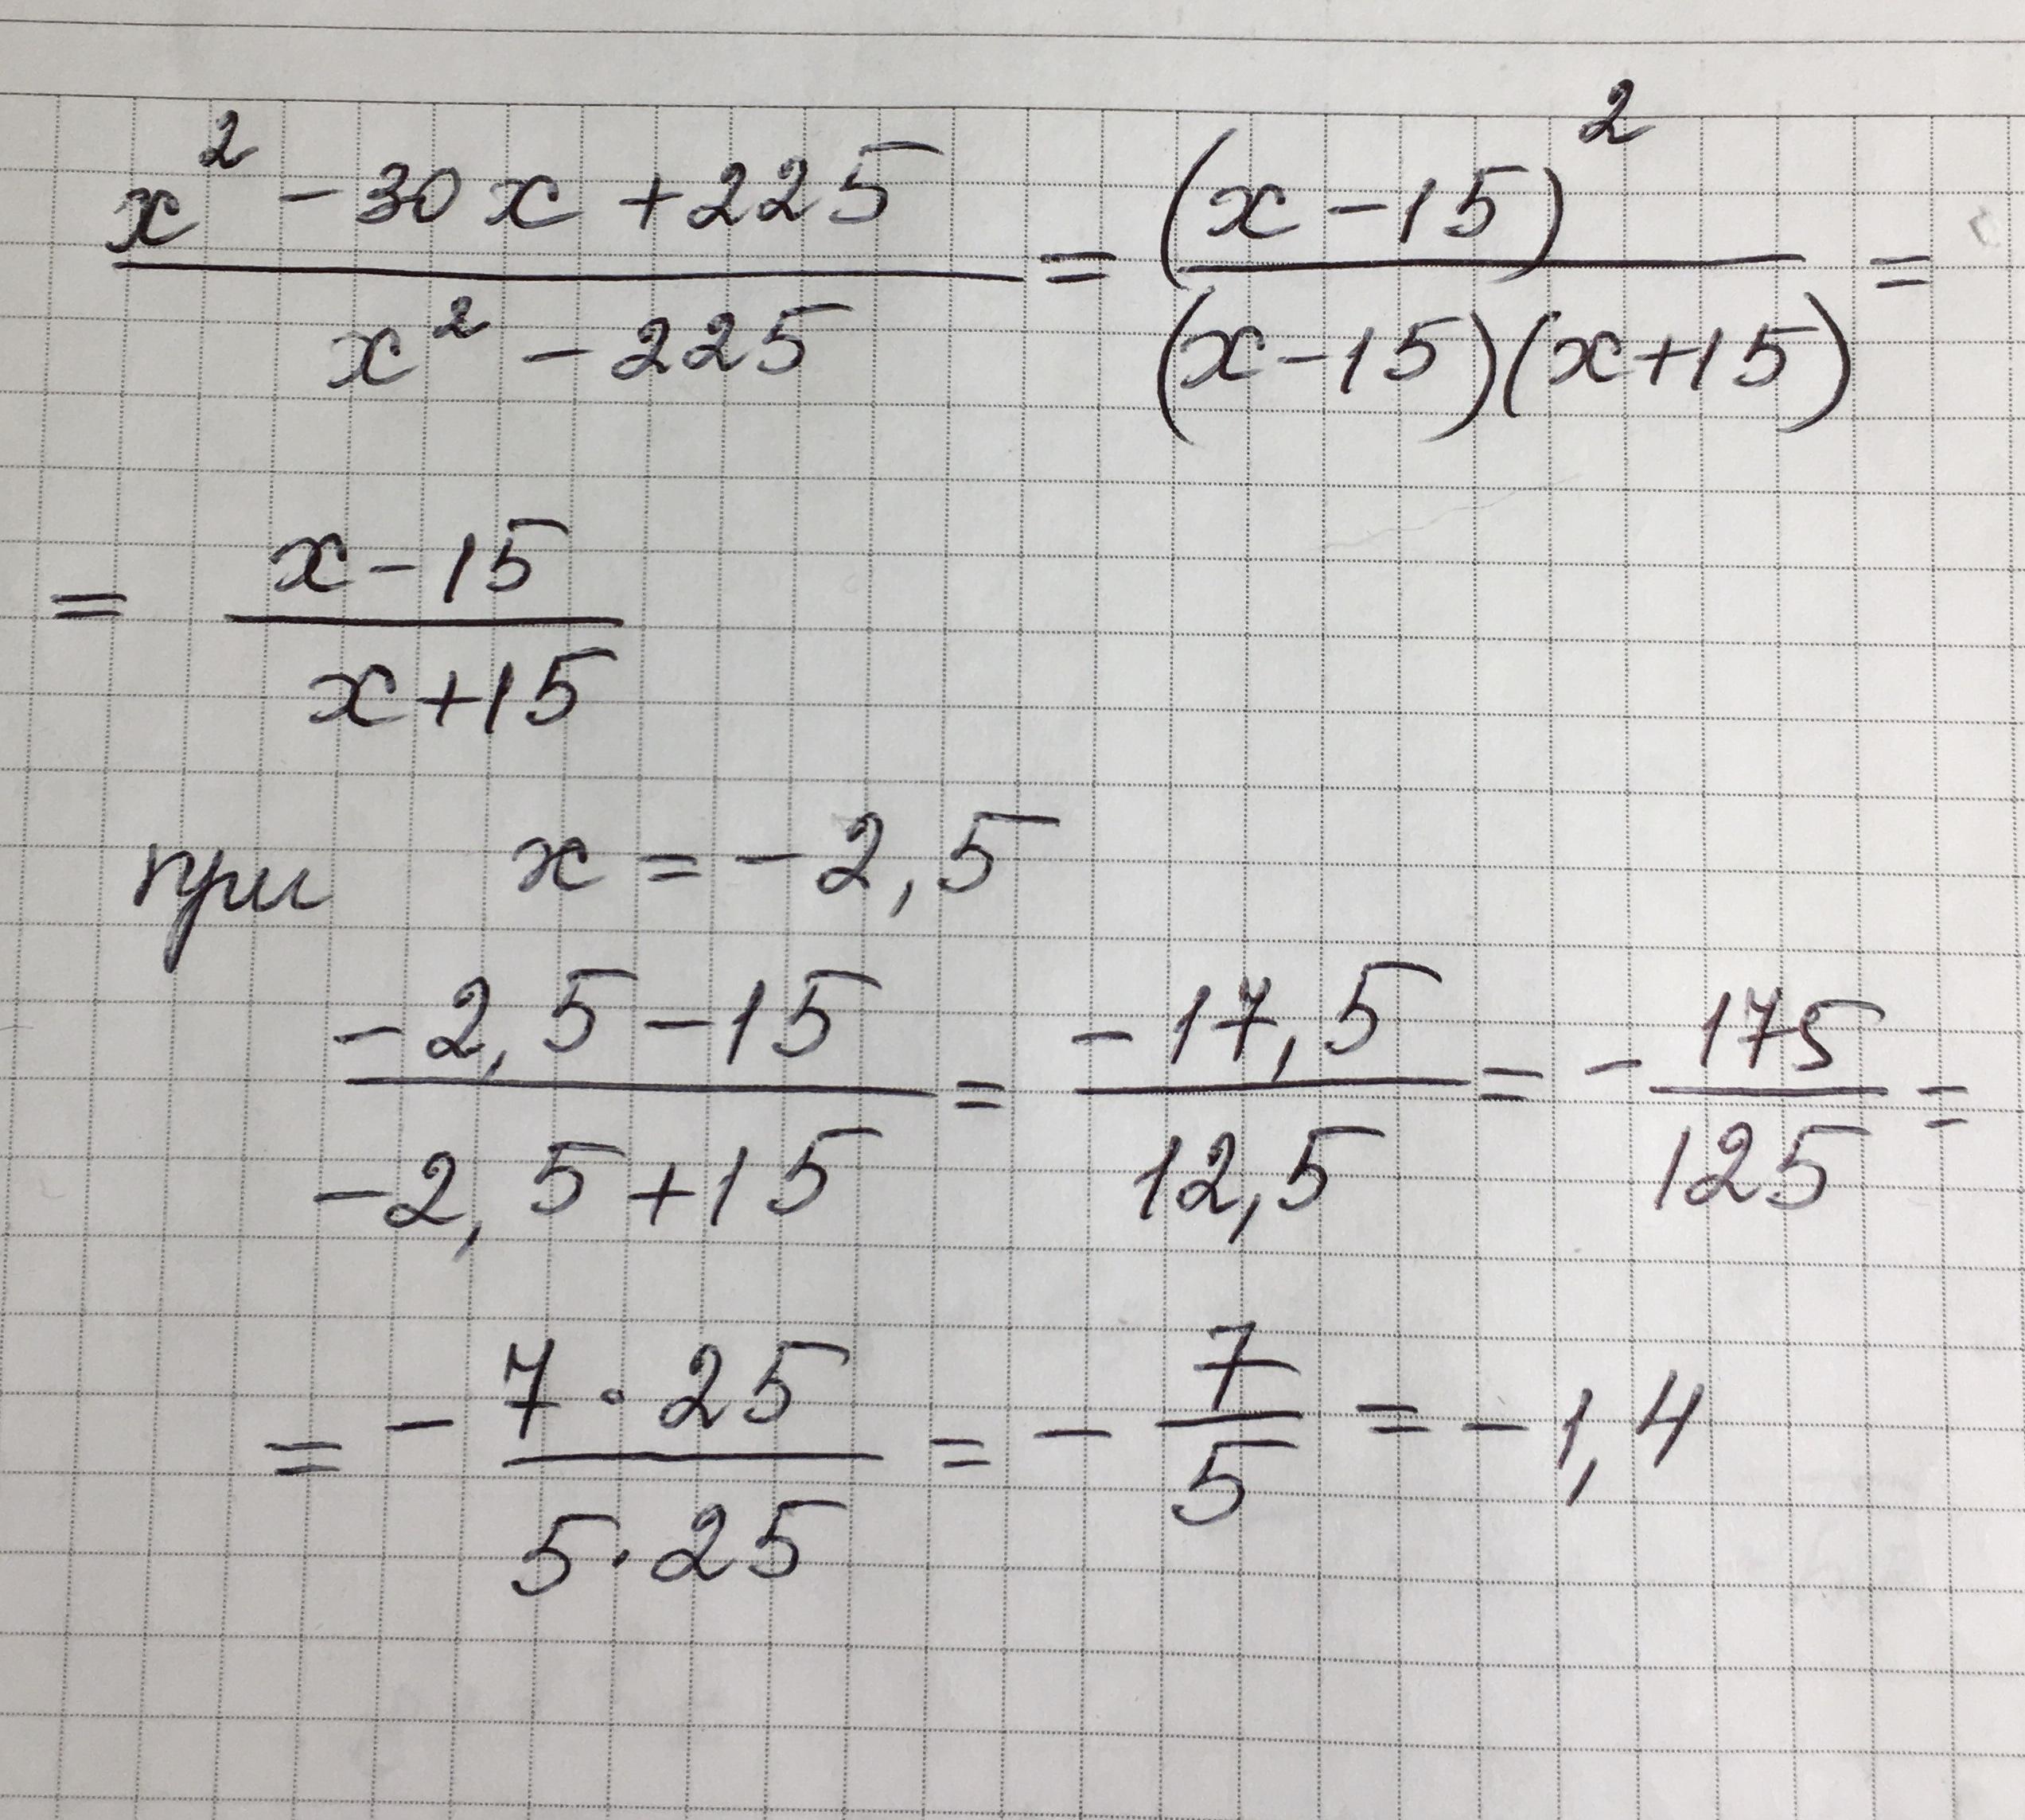 \frac{x^2 - 30x + 225}{x^2 - 225} = \frac{(x-15)^2}{(x-15)(x+15)} =
= \frac{x-15}{x+15}
при x = -2,5
\frac{-2,5-15}{-2,5+15} = \frac{-17,5}{12,5} = -\frac{175}{125} =
= -\frac{7 \cdot 25}{5 \cdot 25} = -\frac{7}{5} = -1,4